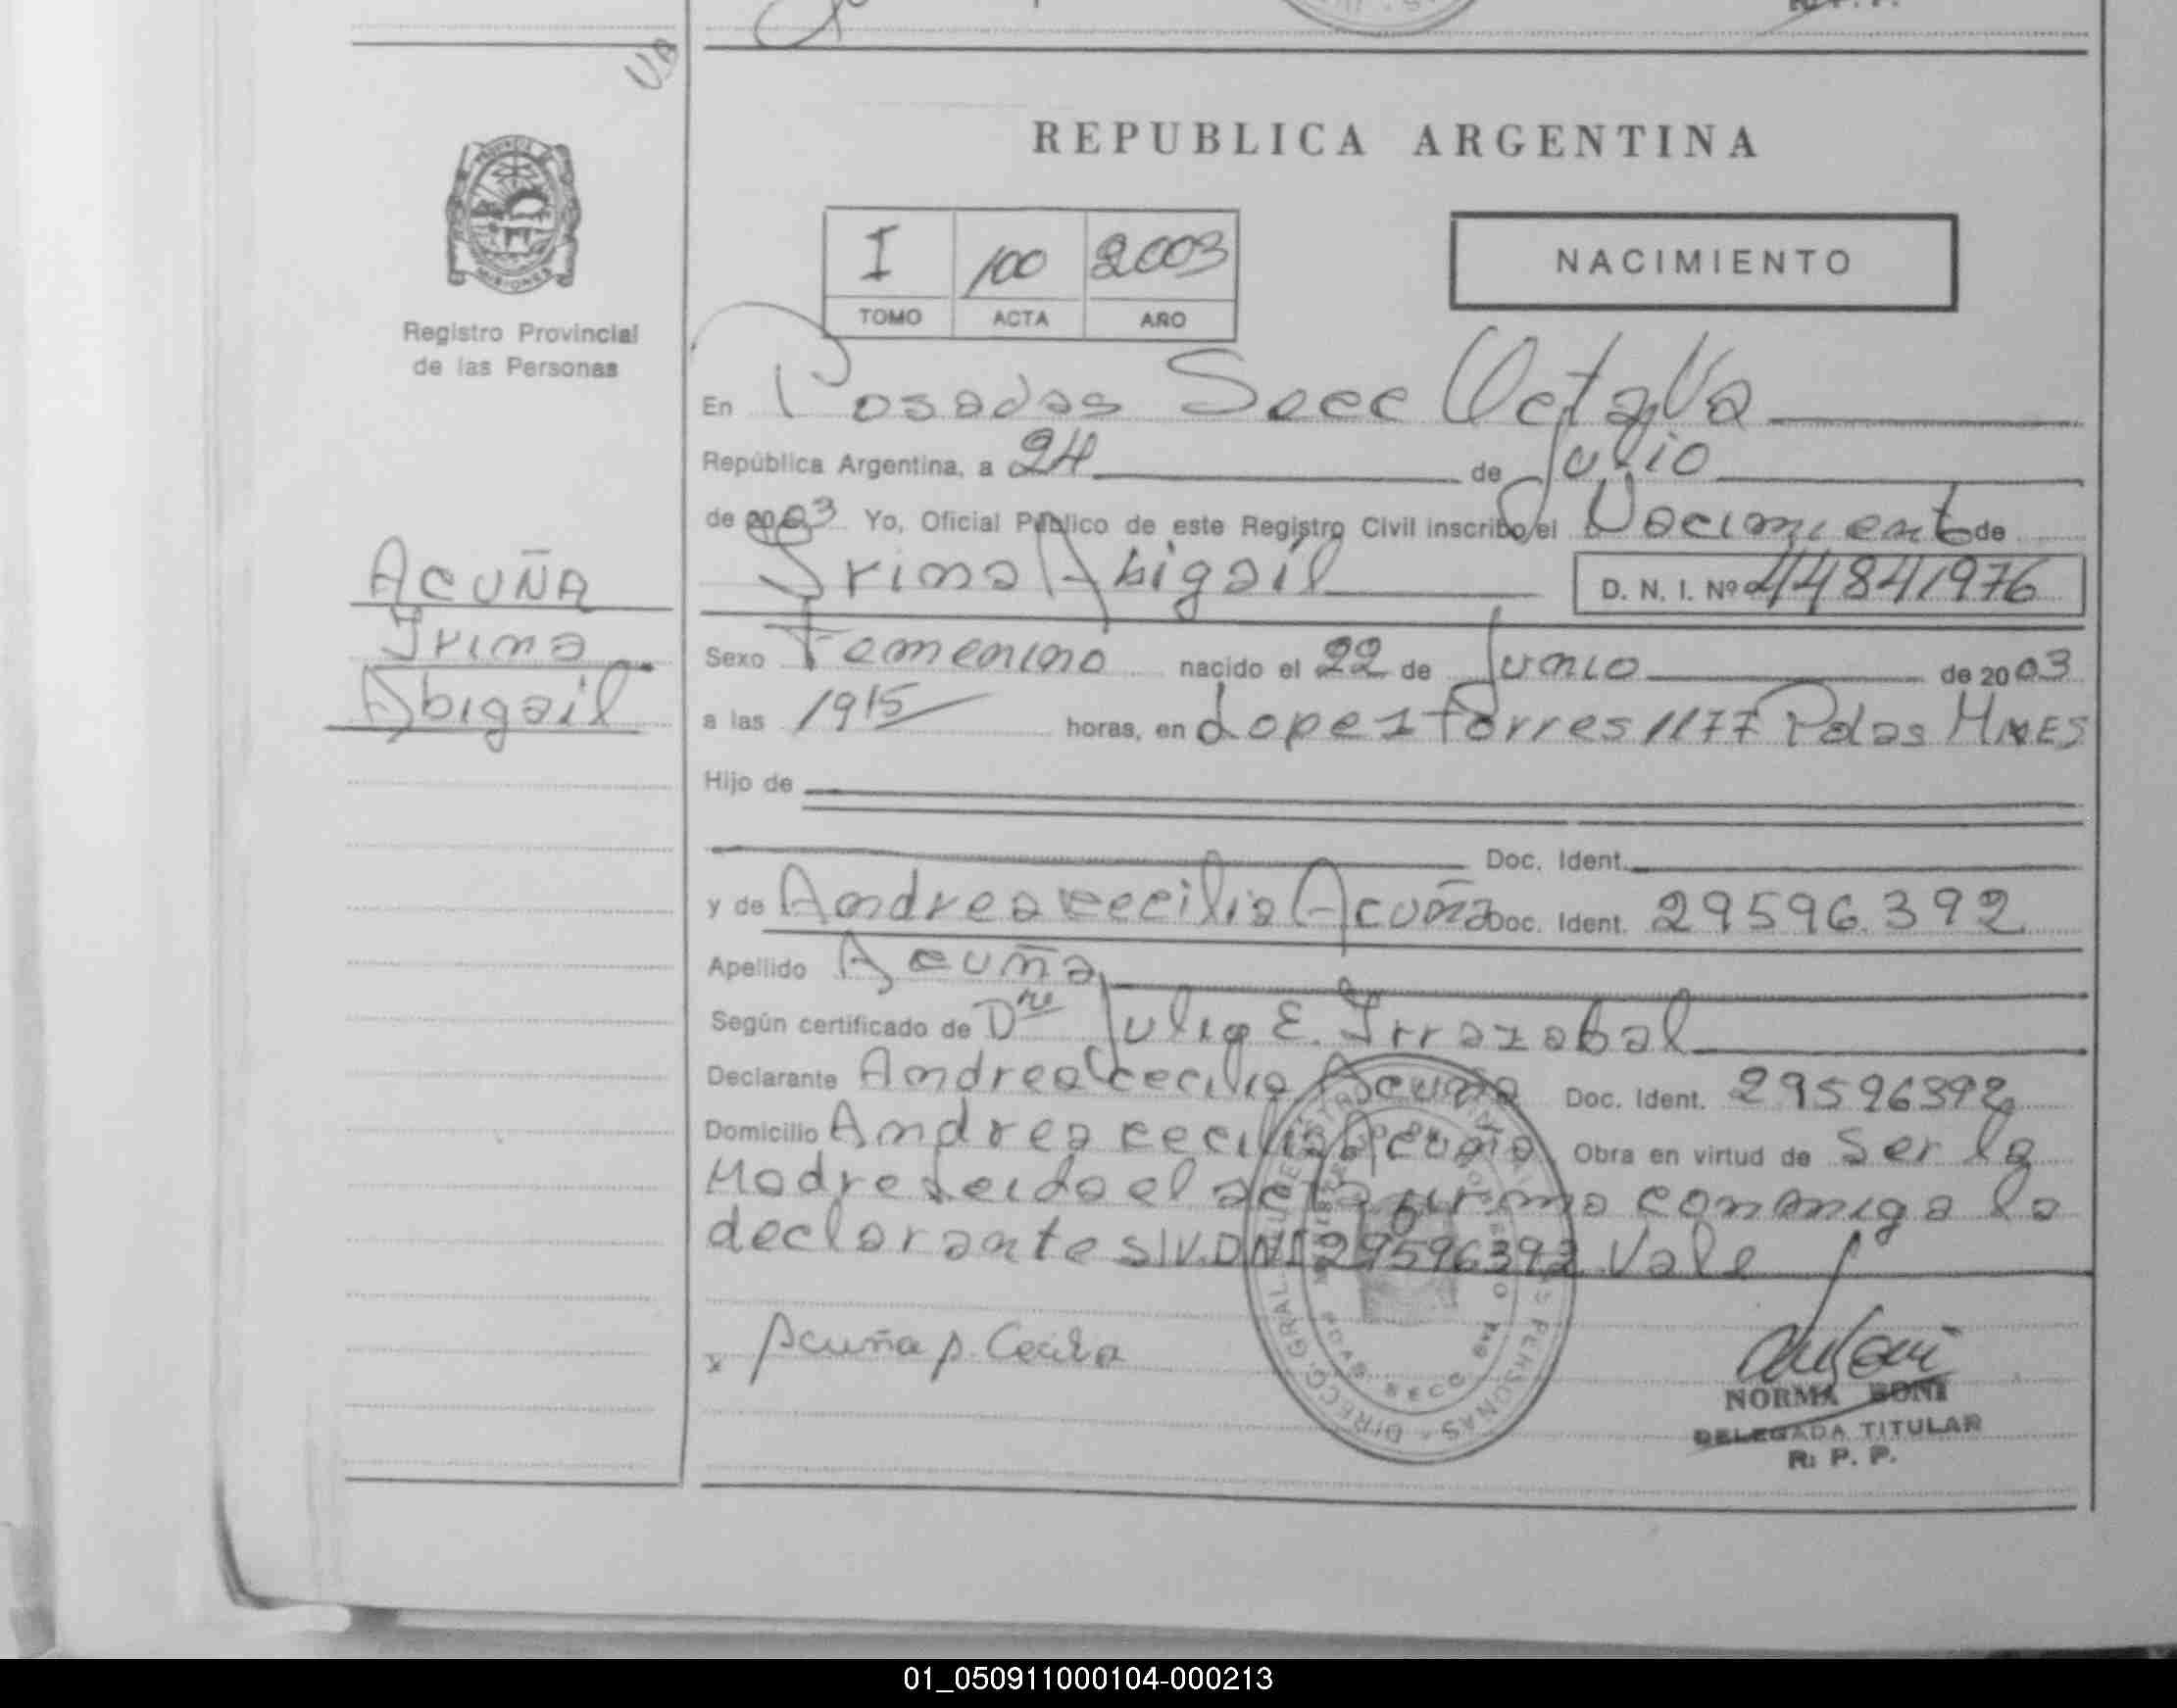 UA
REPUBLICA ARGENTINA
I 100 2003
TOMO ACTA AÑO
NACIMIENTO
Registro Provincial
de las Personas
En Posadas Secc Octava
República Argentina, a 24 de Julio
de 2003 Yo, Oficial Público de este Registro Civil inscribo el Nacimiento de
Irina Abigail D. N. I. Nº 44841976
ACUÑA
Irina
Abigail
Sexo Femenino nacido el 22 de Junio de 2003
a las 1915 horas, en Lopez Torres 1177 Pdas MNES
Hijo de
Doc. Ident.
y de Andrea Cecilia Acuña Doc. Ident. 29596.392
Apellido Acuña
Según certificado de Dra Julia E. Irrazabal
Declarante Andrea Cecilia Acuña Doc. Ident. 29596392
Domicilio Andrea Cecilia Acuña Obra en virtud de Ser la
Madre Leido el acta firma conmigo la
declarante S/V. DNI 29596392 Vale
x Acuña A. Cecilia
NORMA BONI
DELEGADA TITULAR
R. P. P.
01_050911000104-000213